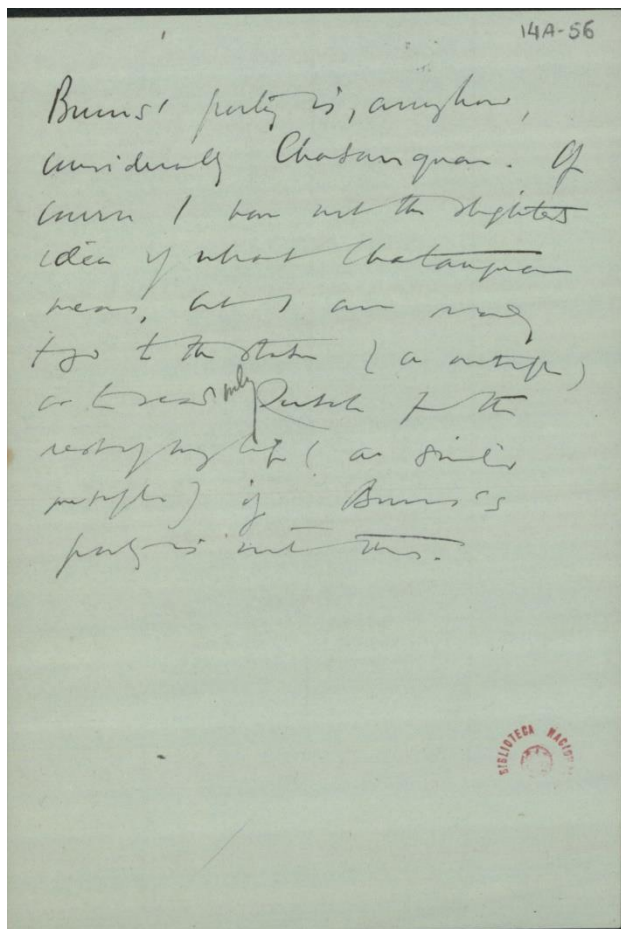 14A-56
Burns' poetry is, anyhow,
considerably Chatauquan. Of
course I have not the slightest
idea of what Chatauquan
means, but I am ready
to go to the stake (a metaphor)
or to read only for the
rest of my life (a similar
metaphor) if Burns's
poetry is not this.
BIBLIOTECA NACIONAL